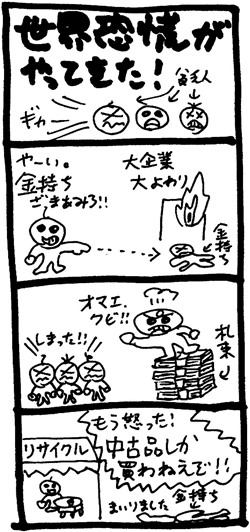 世界恐慌が
やってきた！
貧乏人
ギャー
やーい。
金持ち
ざまあみろ!!
大企業
大よわり
金持ち
しまった!!
オマエ、
クビ!!
札束
リサイクル
もう怒った！
中古品しか
買わねえで!!
まいりました
金持ち